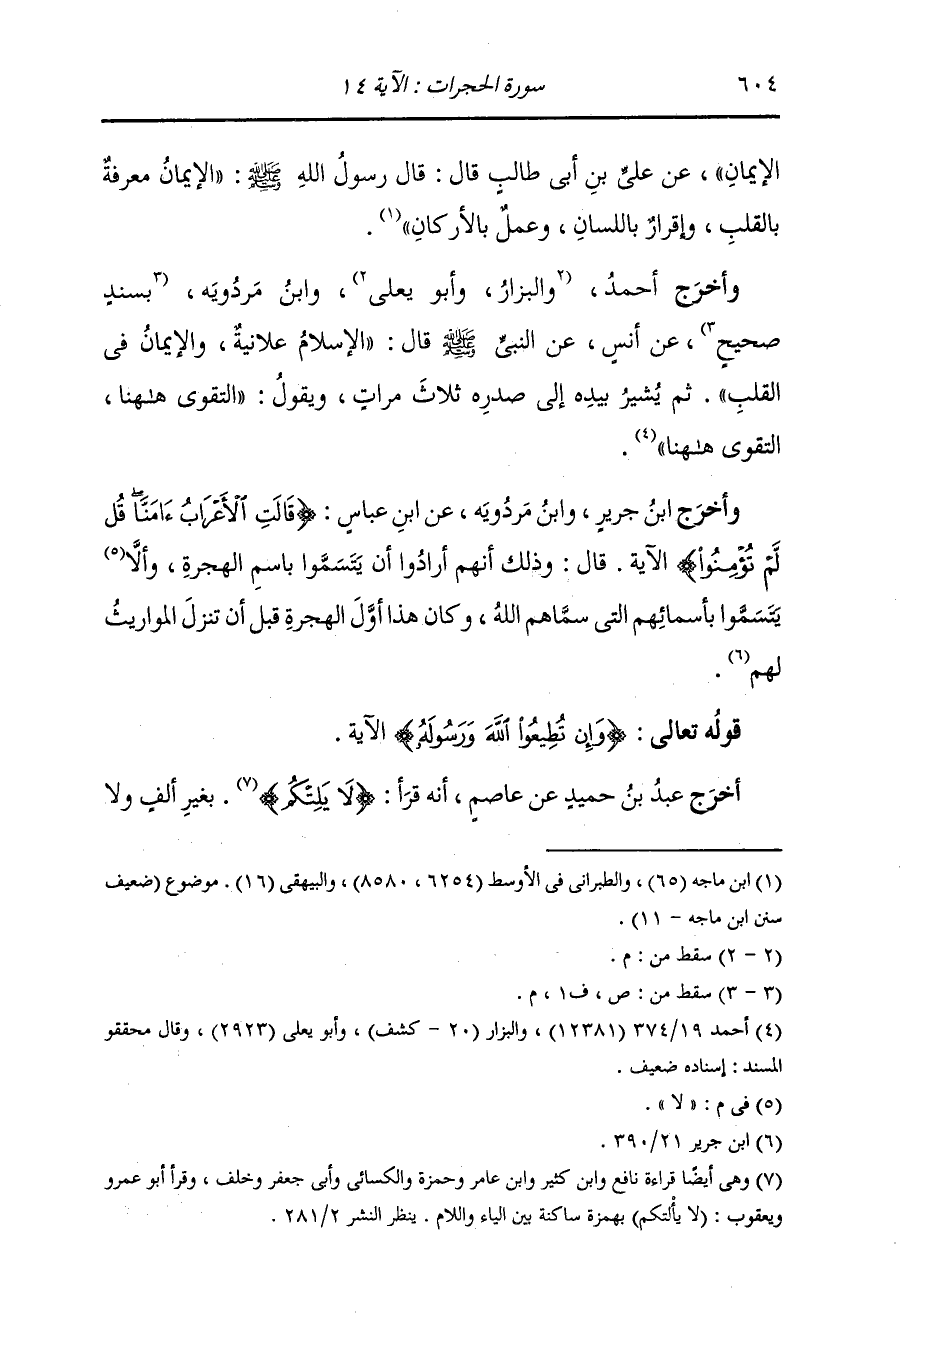 ٦٠٤ سورة الحجرات : الآية ١٤
الإيمانِ» ، عن علىِّ بنِ أبى طالبٍ قال : قال رسولُ اللهِ ﷺ : «الإيمانُ معرفةٌ
بالقلبِ ، وإقرارٌ باللسانِ ، وعملٌ بالأركانِ»(١) .
وأخرَج أحمدُ ، (٢والبزارُ ، وأبو يعلى٢) ، وابنُ مَردُويَه ، (٣بسندٍ
صحيحٍ٣) ، عن أنسٍ ، عن النبىِّ ﷺ قال : «الإسلامُ علانيةٌ ، والإيمانُ فى
القلبِ» . ثم يُشيرُ بيدِه إلى صدرِه ثلاثَ مراتٍ ، ويقولُ : «التقوى هلهنا ،
التقوى هلهنا»(٤) .
وأخرَج ابنُ جريرٍ ، وابنُ مَردُويَه ، عن ابنِ عباسٍ : ﴿قَالَتِ ٱلۡأَعۡرَابُ ءَامَنَّاۖ قُل
لَّمۡ تُؤۡمِنُواْ﴾ الآية . قال : وذلك أنهم أرادُوا أن يَتَسَمَّوا باسمِ الهجرةِ ، وألَّا(٥)
يَتَسَمَّوا بأسمائِهم التى سمَّاهم اللهُ ، وكان هذا أوَّلَ الهجرةِ قبل أن تنزلَ المواريثُ
لهم(٦) .
قولُه تعالى : ﴿وَإِن تُطِيعُواْ ٱللَّهَ وَرَسُولَهُۥ﴾ الآية .
أخرَج عبدُ بنُ حميدٍ عن عاصمٍ ، أنه قرَأ : ﴿لَا يَلِتۡكُم﴾(٧) . بغيرِ ألفٍ ولا
(١) ابن ماجه (٦٥) ، والطبرانى فى الأوسط (٦٢٥٤ ، ٨٥٨٠) ، والبيهقى (١٦) . موضوع (ضعيف
سنن ابن ماجه – ١١) .
(٢ – ٢) سقط من : م .
(٣ – ٣) سقط من : ص ، ف١ ، م .
(٤) أحمد ٣٧٤/١٩ (١٢٣٨١) ، والبزار (٢٠ – كشف) ، وأبو يعلى (٢٩٢٣) ، وقال محققو
المسند : إسناده ضعيف .
(٥) فى م : « لا » .
(٦) ابن جرير ٣٩٠/٢١ .
(٧) وهى أيضًا قراءة نافع وابن كثير وابن عامر وحمزة والكسائى وأبى جعفر وخلف ، وقرأ أبو عمرو
ويعقوب : (لا يألتكم) بهمزة ساكنة بين الياء واللام . ينظر النشر ٢٨١/٢ .